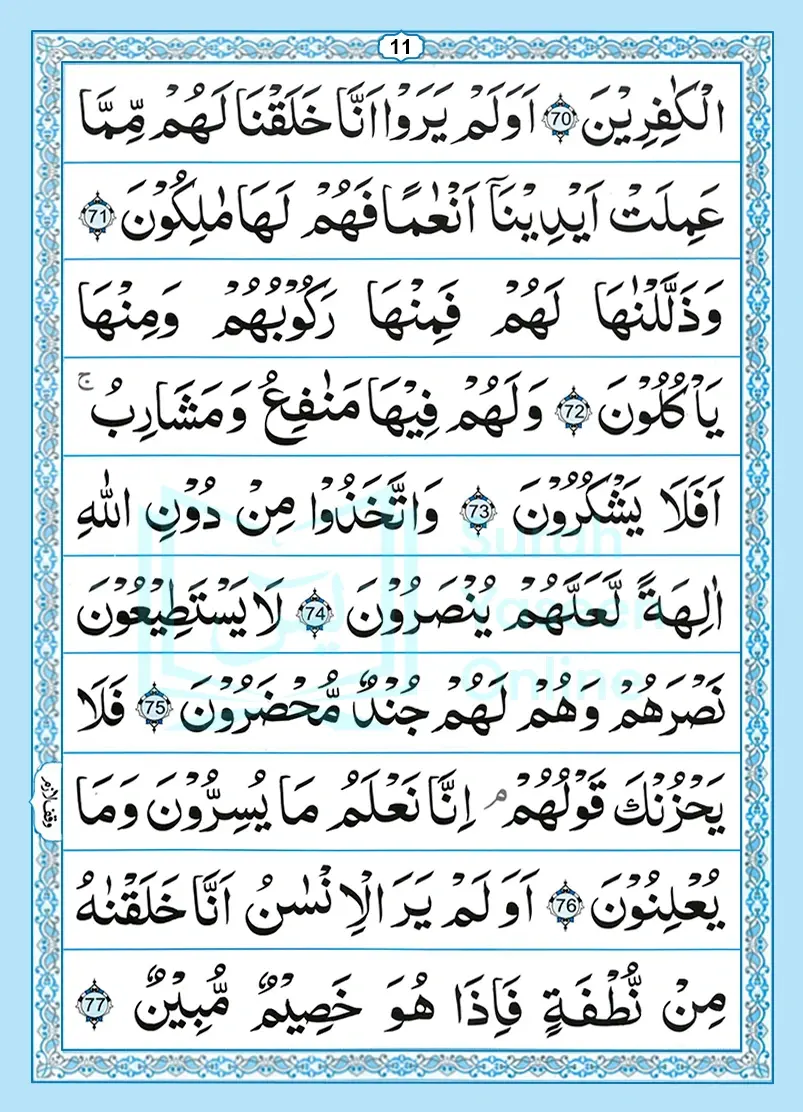 11
الْكٰفِرِيْنَ 70 اَوَلَمْ يَرَوْا اَنَّا خَلَقْنَا لَهُمْ مِّمَّا
عَمِلَتْ اَيْدِيْنَاۤ اَنْعٰمًا فَهُمْ لَهَا مٰلِكُوْنَ 71
وَذَلَّلْنٰهَا لَهُمْ فَمِنْهَا رَكُوْبُهُمْ وَمِنْهَا
يَاْكُلُوْنَ 72 وَلَهُمْ فِيْهَا مَنٰفِعُ وَمَشَارِبُ ۚ
اَفَلَا يَشْكُرُوْنَ 73 وَاتَّخَذُوْا مِنْ دُوْنِ اللّٰهِ
اٰلِهَةً لَّعَلَّهُمْ يُنْصَرُوْنَ 74 لَا يَسْتَطِيْعُوْنَ
نَصْرَهُمْ وَهُمْ لَهُمْ جُنْدٌ مُّحْضَرُوْنَ 75 فَلَا
يَحْزُنْكَ قَوْلُهُمْ ۘ اِنَّا نَعْلَمُ مَا يُسِرُّوْنَ وَمَا
وقف لازم
يُعْلِنُوْنَ 76 اَوَلَمْ يَرَ الْاِنْسٰنُ اَنَّا خَلَقْنٰهُ
مِنْ نُّطْفَةٍ فَاِذَا هُوَ خَصِيْمٌ مُّبِيْنٌ 77
Surah
Yaseen
Online